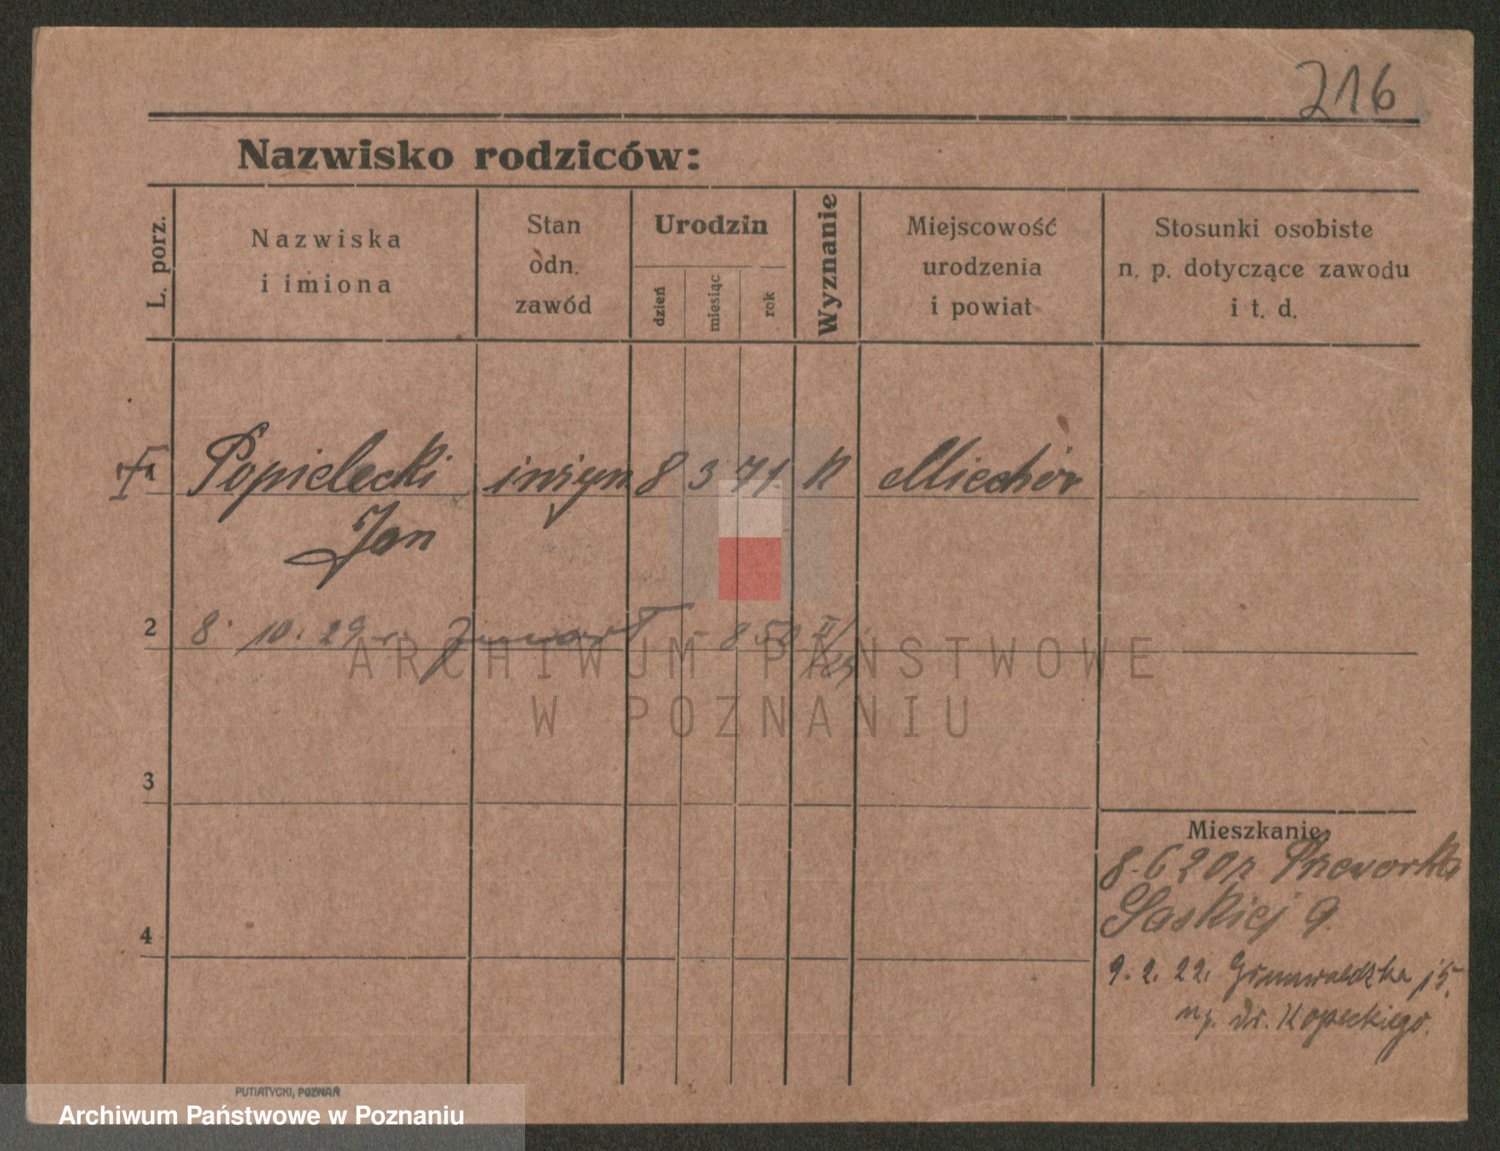 216
Nazwisko rodziców:
L. porz.
Nazwiska
i imiona
Stan
odn.
zawód
Urodzin
dzień
miesiąc
rok
Wyznanie
Miejscowość
urodzenia
i powiat
Stosunki osobiste
n. p. dotyczące zawodu
i t. d.
Popielecki inżyn 8 3 71 K Miechów
Jan
2 8. 10. 29 r. - 850 II/
ARCHIWUM PAŃSTWOWE
W POZNANIU
3
Mieszkanie:
8.6 20 z
Saskiej 9.
4
9. 2. 22. Grunwaldzka 15.
u p. Dr. Kopeckiego.
PUTIATYCKI, POZNAŃ
Archiwum Państwowe w Poznaniu